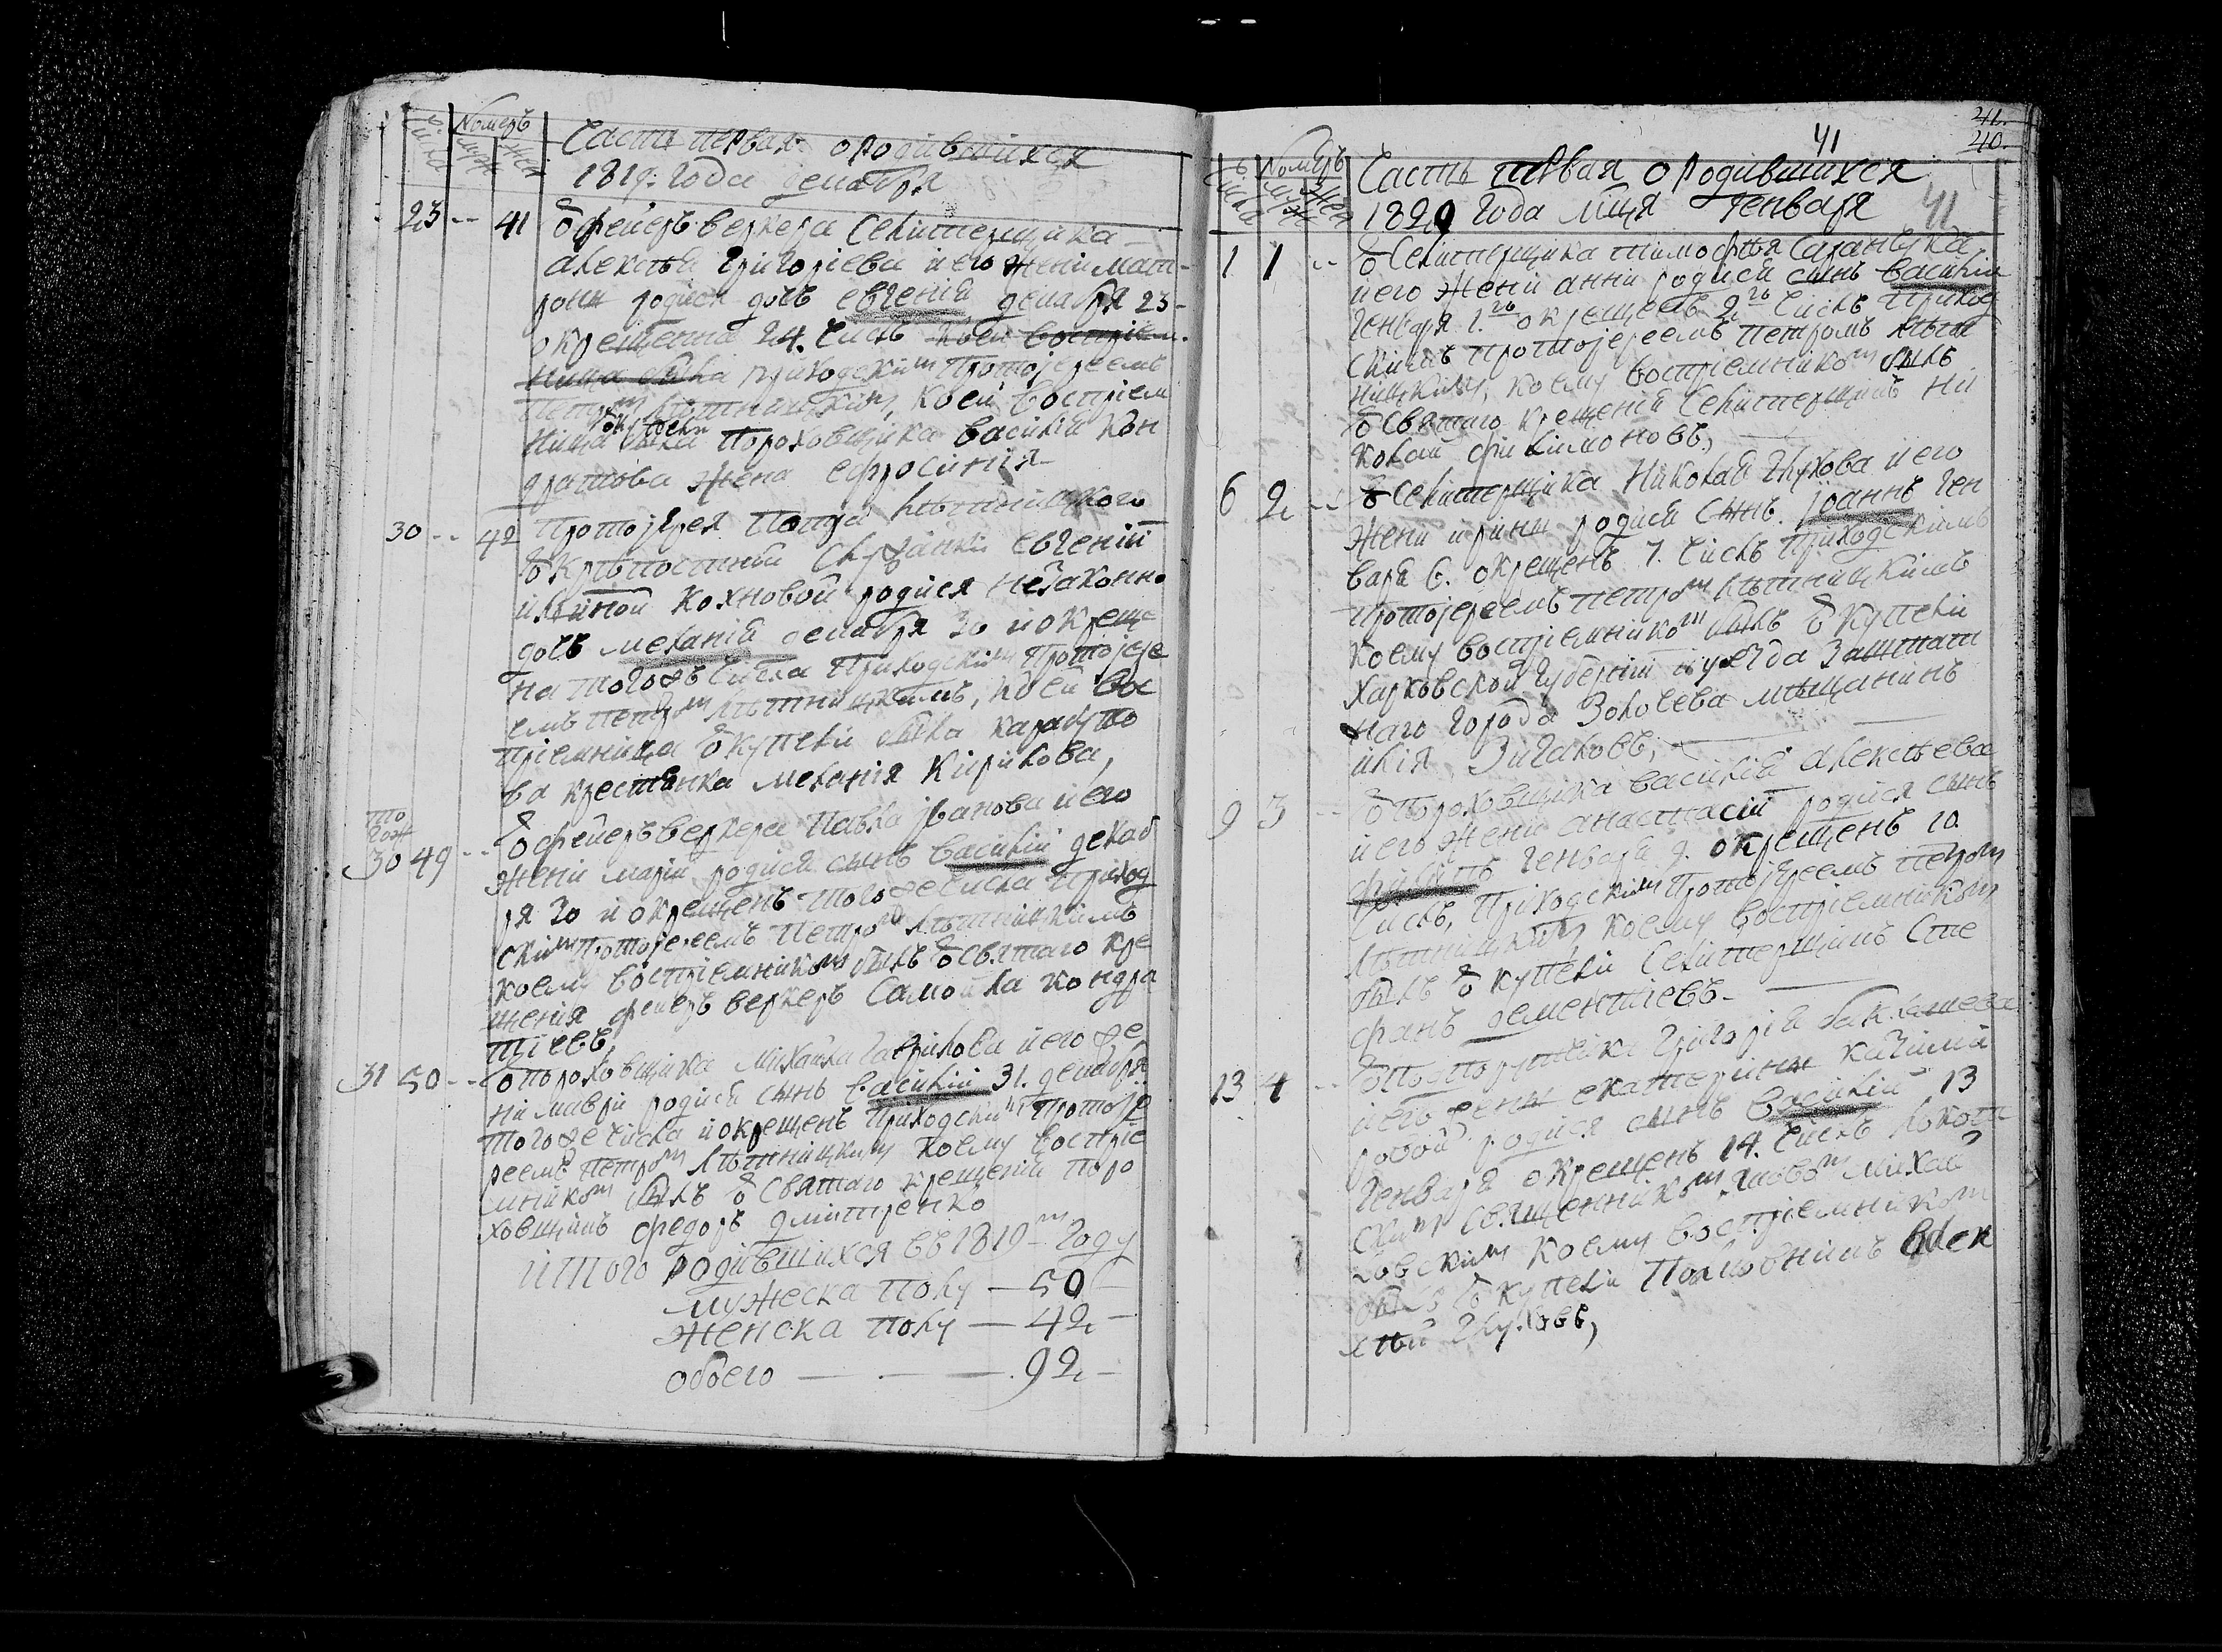 Числа
Номеръ
муж
жен
Часть первая ородившихся
1819: года декабря
23 -- 41 ѿ феиеръверкера Селитерщика
алексѣя Григорїева и его жени Мат-
рони родися дочь евгенїя декабря 23-
окрещенна 24. числъ коей воспрїем.
ница была приходскимъ Протоїереемъ
Петромъ Лѣтницкимъ, коей воспрїем
ѿ купели
ница была Пороховщика василїя Кон
дратова жена ефросинїя
30 -- 42 Протоїерея Петра Лѣтницкого
ѿ крѣпостной Служанки евгенїи
ильиной Кохновой родися незаконно
дочь меланїя декабря 30 и окреще
на тогожъ числа Приходскимъ Протоїере
емъ петромъ Лѣтницкимъ, коей вос
прїемница ѿ купели была
ва крестянка меланїя Кирилова,
то
гож
30 49 -- ѿ феиеръверкера Павла їванова и его
жени марїи родися сынъ василїй декаб
ря 30 и окрещенъ тогоже числа приход
скимъ Протоїереемъ Петромъ Лѣтницкимъ
коему воспрїемникомъ былъ ѿ святаго кре
щенїя феиеръверкеръ Самойла кондра
тїевъ,
31 50 -- ѿ пороховщика Михайла гаврилова и его же
ни маври родися сынъ василїй 31. декабря
тогоже числа и окрещенъ приходскимъ Протоїе
реемъ Петромъ Лѣтницкимъ коему воспрїе
мникомъ былъ ѿ святаго крещенїя поро
ховщикъ федоръ дмитренко
итого родившихся въ 1819-мъ году
мужеска полу — 50
женска полу — 42 —
обоего — — — 92 —
41
41.
40.
Числа
Номеръ
муж
Жен
Часть первая ородившихся
1820 года мця генваря 41
1 1 -- ѿ Селитерщика тимофѣя
и его жени анни родися сынъ василїй
генваря 1.го окрещенъ 2го числъ приход
скимъ протоїереемъ петромъ лѣт
ницкимъ, коему воспрїемникомъ былъ
ѿ святаго крещенїя Селитерщикъ ни
колай филимоновъ,
6 2 -- ѿ Селитерщика Николая Глухова и его
жени ирини родися сынъ їоаннъ ген
варя 6. окрещенъ 7. числъ приходскимъ
протоїереемъ петромъ лѣтницкимъ
коему воспрїемникомъ былъ ѿ купели
харковской губернїи и уезда Заштат
наго города Золочева мѣщанинъ
илїя Зигаловъ,
9 3 -- ѿ Пороховщика василїя алексѣева
и его жени анастасїи родися сынъ
филипъ генваря 9. окрещенъ 10
числъ, Приходскимъ Протоїереемъ петромъ
Лѣтницкимъ коему воспрїемникомъ
былъ ѿ купели Селитерщикъ Сте
фанъ дементїевъ.
13 4 -- ѿ Григорїя
и его жени екатерини
родися сынъ василїй 13
генваря окрещенъ 14. числъ
скимъ священникомъ михай
ловскимъ коему воспрїемникомъ
былъ ѿ купели Полковникъ Алек
сѣй Глуховъ,